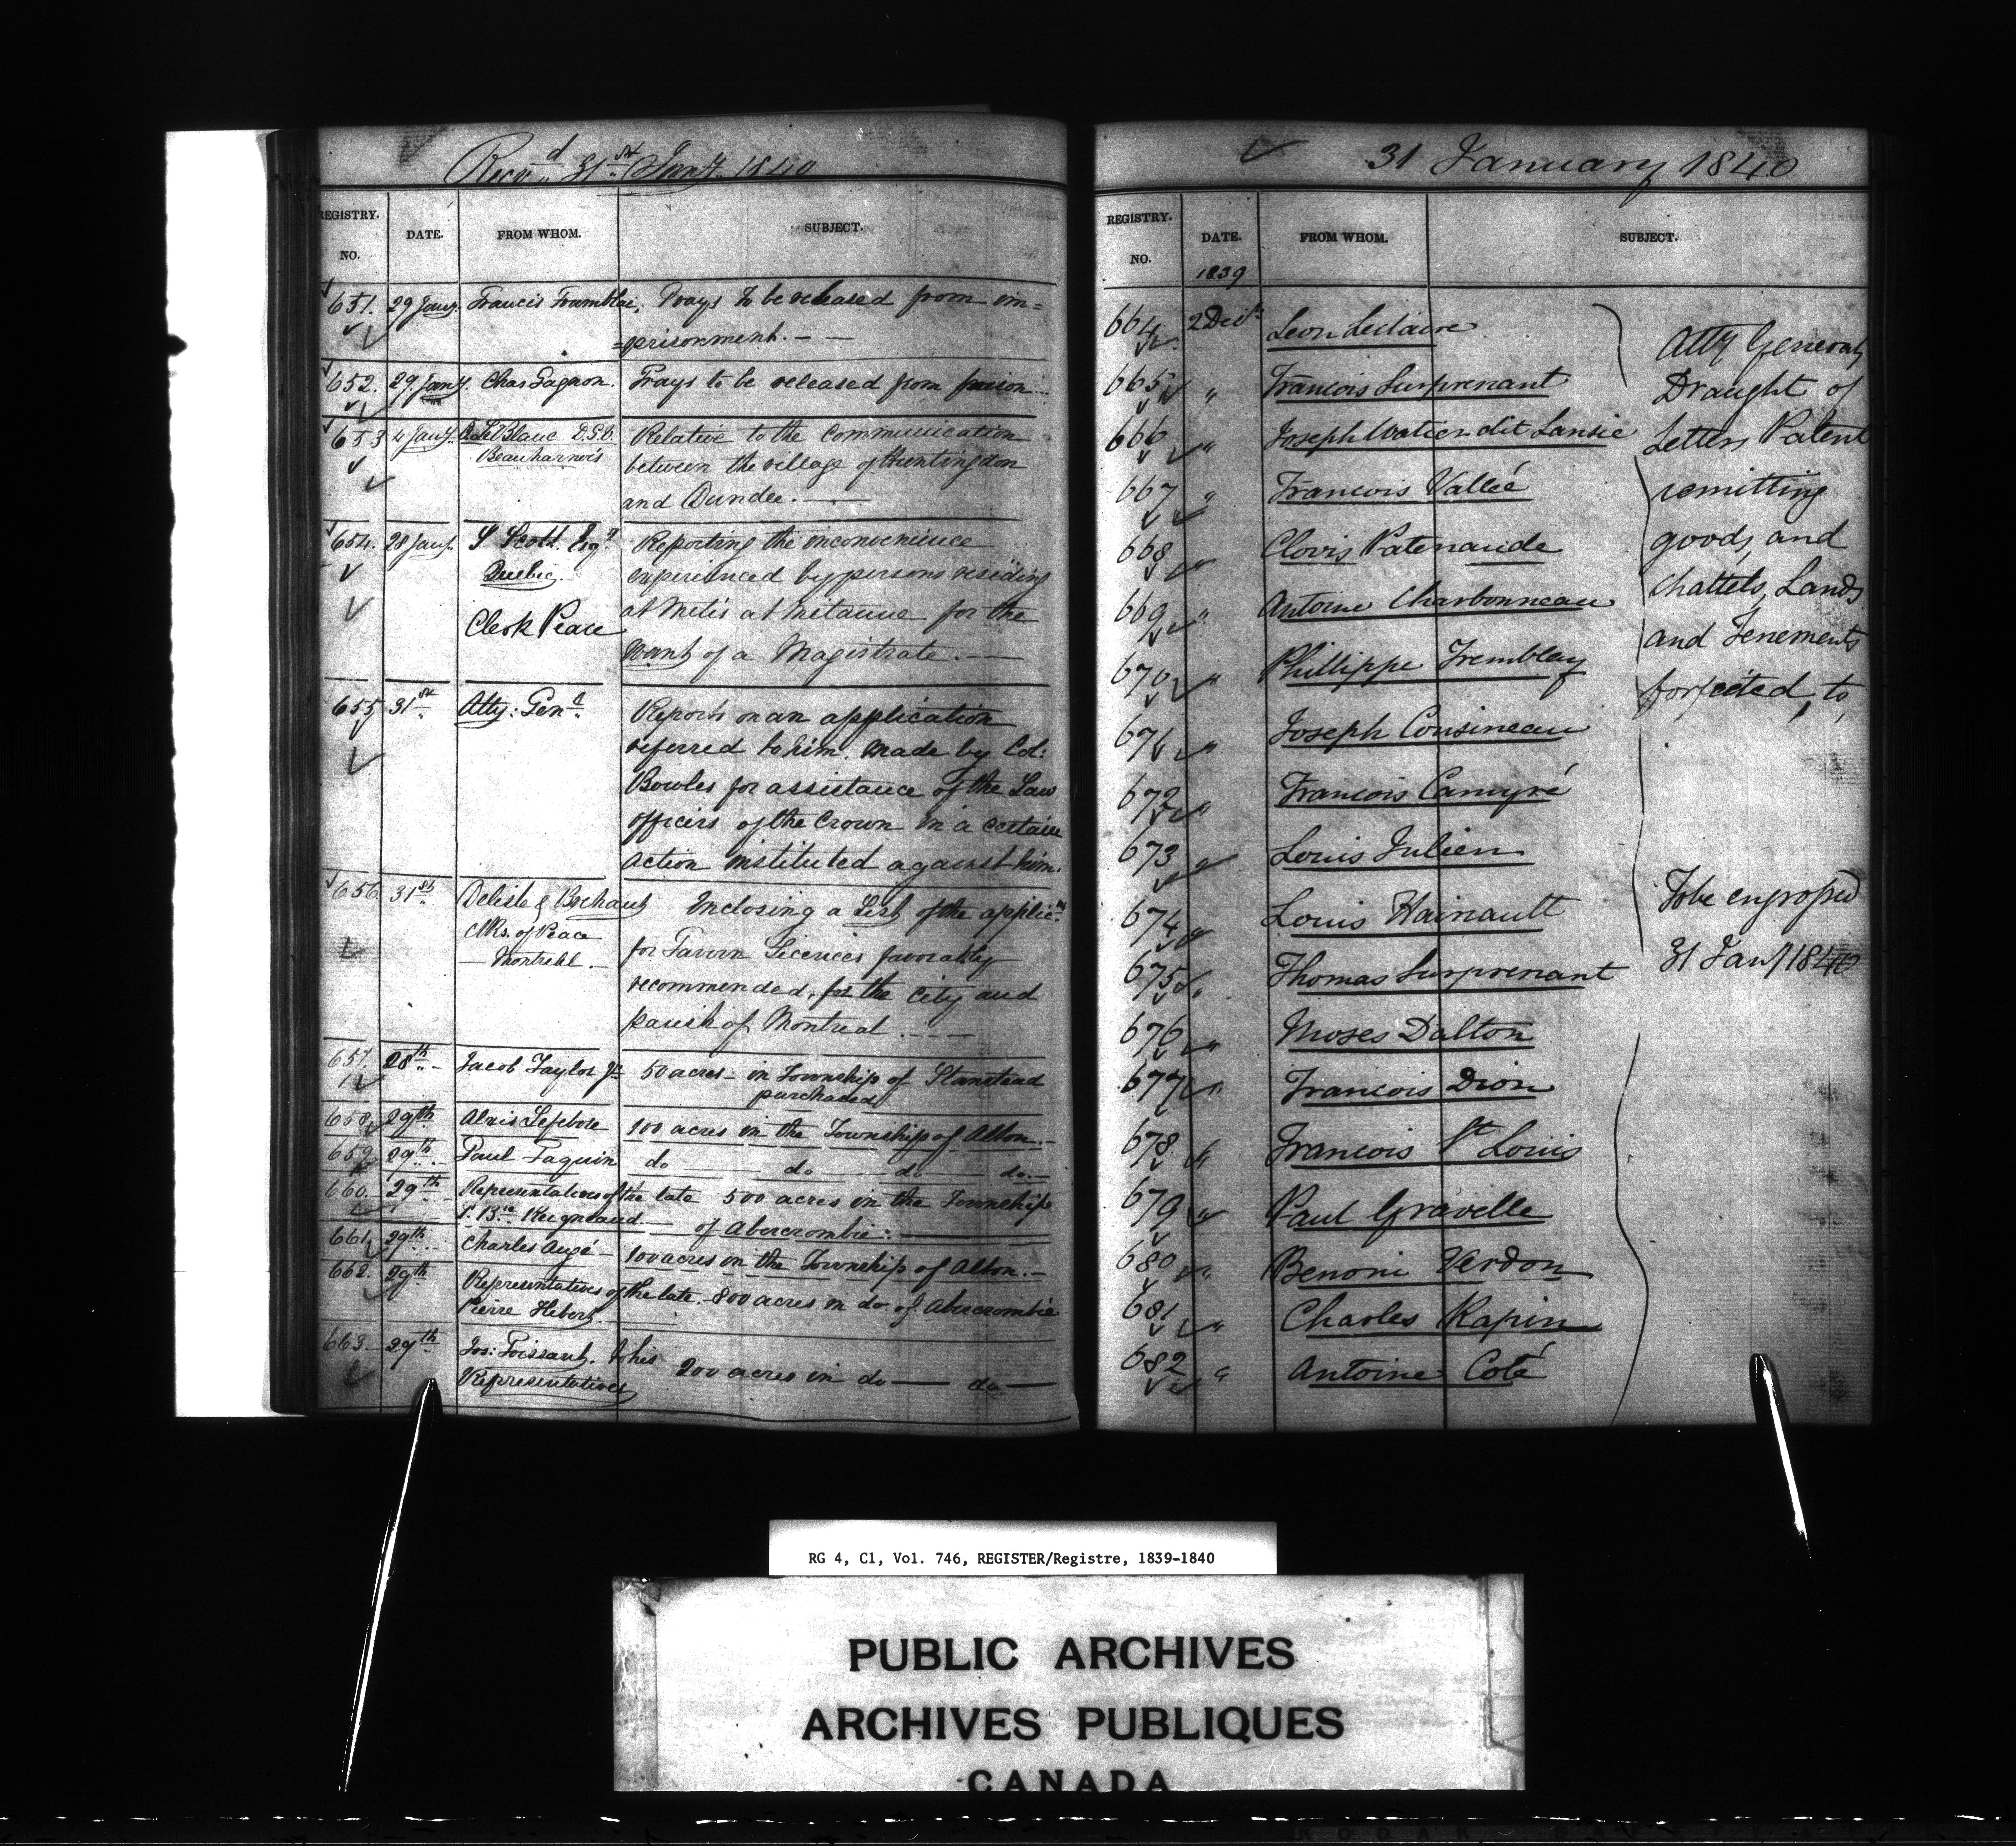 Recd. 31st Jany. 1840
REGISTRY. NO. DATE. FROM WHOM. SUBJECT.
651. 29 Jany. Francis Tramblai, Prays to be released from im=
=prisonment. —
652. 29 Jany. Chas Gagnon. Prays to be released from prison
653 4 Jany. LeBlanc D.S.G. Relative to the Communication
Beauharnois between the village of Huntingdon
and Dundee. —
654. 28 Jany. S Scott. Esqr. Reporting the inconvenience
Quebec. experienced by persons residing
at Metis at Mitanne for the
Clerk Peace
want of a Magistrate. —
655 31st Atty: Genl. Reports on an application
referred to him. made by Col:
Bowles for assistance of the Law
officers of the Crown in a certain
action instituted against him.
656 31st Delisle & Brehaut Enclosing a List of the applic
Clks. of Peace for Tavern Licences favorably
— Montreal. — recommended, for the City and
parish of Montreal
657. 28th Jacob Taylor Jr 50 acres — in Township of Stanstead
purchased
658 29th. Alexis Lefebvre 100 acres in the Township of Alton. —
659. 29th. Paul Paquin do do do do. —
660. 29th Representatives of the late 500 acres in the Township
J. Bte. Reigneaud. — of Abercrombie:
661. 29th Charles Augé — 100 acres in the Township of Alton. —
662. 29th Representatives of the late. 800 acres in do of Abercrombie
Pierre Hebert.
663 29th Jos: Poissant. & his 200 acres in do — do —
Representatives
31 January 1840
REGISTRY. NO. DATE. FROM WHOM. SUBJECT.
1839
664 2 Decr Leon Leclaire
665 " Francois Surprenant
666 " Joseph Watier dit Lansie
667 " Francois Vallée
668 " Clovis Patenaude
669 " Antoine Charbonneau
670 " Phillippe Tremblay
671 " Joseph Cousineau
672 " Francois Camyré
673 " Louis Julien
674 " Louis Hainault
675 " Thomas Surprenant
676 " Moses Dalton
677 " Francois Dion
678 " Francois St Louis
679 " Paul Gravelle
680 " Benoni Verdon
681 " Charles Rapin
682 " Antoine Coté
Atty General,
Draught of
Letters Patent
remitting
goods, and
chattels, Lands
and Tenements
forfeited, to,
To be engrossed
31 Jany 1840
RG 4, C1, Vol. 746, REGISTER/Registre, 1839-1840
PUBLIC ARCHIVES
ARCHIVES PUBLIQUES
CANADA